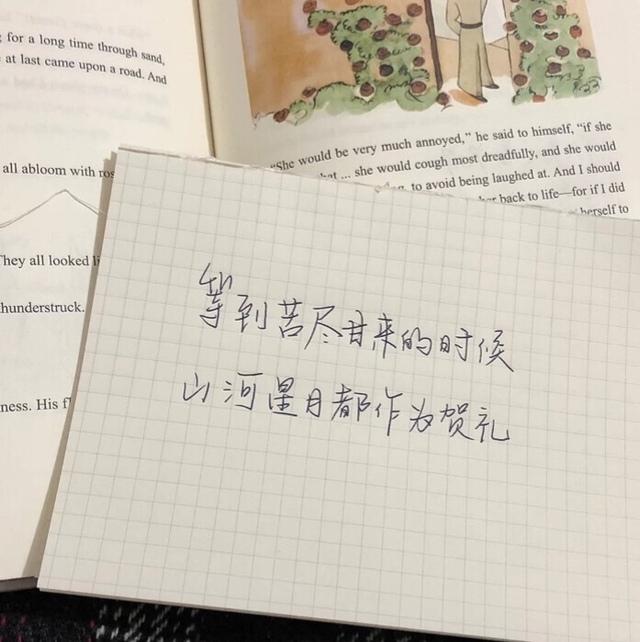 for a long time through sand,
at last came upon a road. And
all abloom with
They all looked
thunderstruck.
ness. His
"She would be very much annoyed," he said to himself, "if she
... she would cough most dreadfully, and she would
to avoid being laughed at. And I should
back to life—for if I did
herself to
等到苦尽甘来的时候
山河星月都作为贺礼